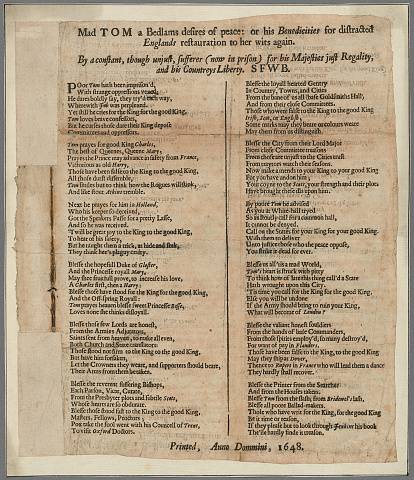 Mad TOM a Bedlams desires of peace: or his Benedicities for distracted
Englands restauration to her wits again.
By a constant, though unjust, sufferer (now in prison) for his Majesties just Regality,
and his Countreys Liberty. S F W B.
POor Tom hath been imprison'd,
With strange oppressions
He threnslily say, they try'd each way,
Wherewith Tom was perplexed.
Yet still he cries for the King for the good King,
Tom loves
But he curses those that the King depose
Committees and oppressors.
Tom prayes for good King Charles,
The best of Queenes, Queene Mary,
Prayes the Prince may advance in safety from France,
Victorious as old Harry.
Those have been faithful to the King to the good King,
All those do
Tom findes but to think how the Rogues will stink,
And like
Next he prayes for him in Holland,
Who his keeper deceived,
Got the Speakers Passe for a pretty Lasse,
And so he was received.
T'will be great joy to the King to the good King,
To hear of his safety,
But he taught them a trick, to hide and seek,
They think hee's plaguy crafty.
Blesse the hopefull Duke of Gloster,
And the Princesse royall Mary,
May she fruitfull prove, to increase his love,
A Charles first, then a Harry:
Blesse those have stood for the King for the good King,
And the Off-spring Royall:
Tom prayes heaven blesse sweet Princesse Besse,
Loves none she thinks disloyall.
Blesse those few Lords are honest,
From the Armies Adjutators,
Saints sent from heaven, to make all even,
Both Church and State
Those stood not firm to the King to the good King,
But have him forsaken,
Let the Crownes they weare, and supporters should beare,
Their Arms from them be taken.
Blesse the reverent suffering Bishops,
Each Parson, Vicar, Curate,
From the Presbyter plots and subtile Scots,
Whose hearts are so obdurate.
Blesse those stood fast to the King to the good King,
Masters, Fellows, Proctors
Pox take the fool went with his Councell of Trent,
To visit Oxford Doctors.
Blesse the loyall hearted Gentry
In Country, Towns, and Cities
From the bane of us all those Goldsmiths Hall,
And from their close Committees.
Those whoever false to the King to the good King
Irish, Scot, or English,
Some marks may they beare or colours weare
May them from us distinguish.
Blesse the City from their Lord Major
From close Committee treasons
From those are traytors to the Cities trust
From traytors watch their seasons.
Now make amends to your King to your good King
For you have undone him,
Your coyne to the Scots, your strength and their plots
Have brought these dis upon him.
By poore Tom be advised
As you at White-hall tryed
So in Pauls call for a common hall,
It cannot be denyed.
Call on the States for your King for your good King
With them to deliver
Unto justice those who the peace oppose,
You strike it dead for ever.
Blesse us all 'tis a mad World,
Tom's heart is struck with pitty
To think how of late this thing call'd a State
Hath wrought upon this City.
'Tis time you call for the King for the good King
Else you will be undone
If the Army should bring to ruin your King,
What will become of London?
Blesse the valiant honest souldiers
From the hands of base Commanders,
From those they'l employ'd, so many destroy'd,
For want of pay in Flanders,
Those have been false to the King, to the good King
May they ships at Dover,
Thence to Rogers in France who will lead them a dance
They hardly shall recover.
Blesse the Printer from the Searcher
And from the Houses takers
Blesse Tom from the slash, from Bridewel's lash,
Blesse all poore Ballad-makers.
Those who have writ for the King, for the good King
Be it rime or reason,
If they please but to look through Jenkins his book
The'ile hardly finde it treason.
Printed, Anno Dommini, 1648.